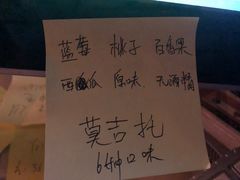 蓝莓 桃子 百香果
西瓜 原味 无酒精
莫吉托
6种口味